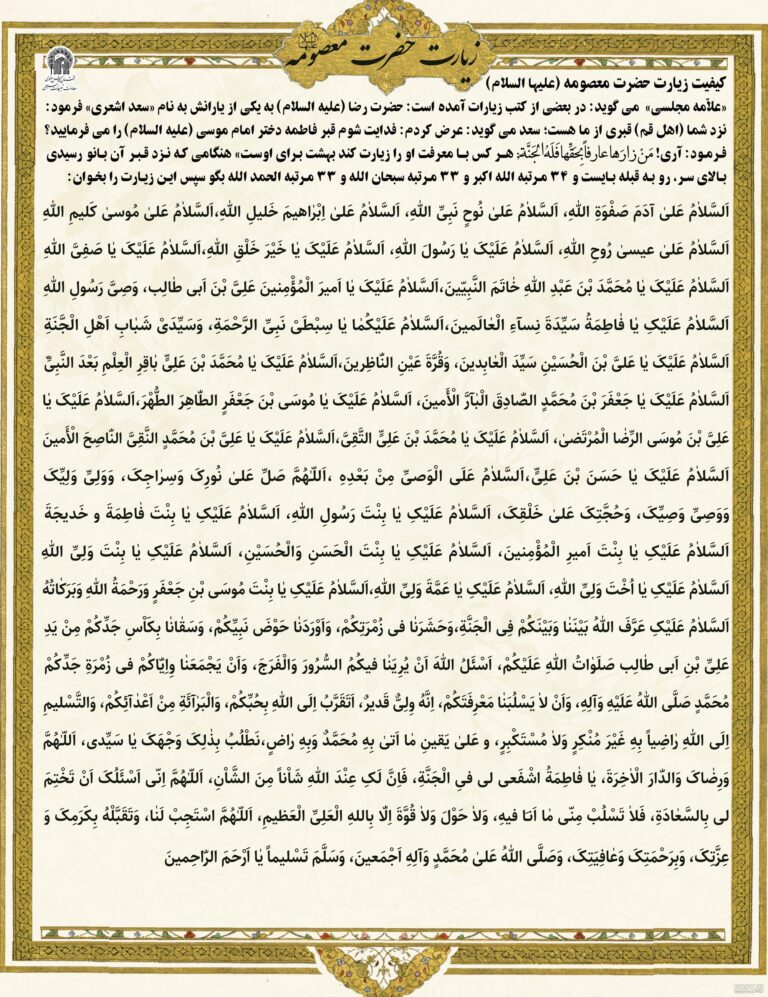 زیارت حضرت معصومه
کیفیت زیارت حضرت معصومه (علیها السلام)
«علاّمه مجلسی» می گوید: در بعضی از کتب زیارات آمده است: حضرت رضا (علیه السلام) به یکی از یارانش به نام «سعد اشعری» فرمود:
نزد شما (اهل قم) قبری از ما هست؛ سعد می گوید: عرض کردم: فدایت شوم قبر فاطمه دختر امام موسی (علیه السلام) را می فرمایید؟
فرمود: آری! مَنْ زارَها عارِفاً بِحَقِّها فَلَهُ الْجَنَّة؛ هر کس با معرفت او را زیارت کند بهشت برای اوست» هنگامی که نزد قبر آن بانو رسیدی
بالای سر، رو به قبله بایست و ۳۴ مرتبه الله اکبر و ۳۳ مرتبه سبحان الله و ۳۳ مرتبه الحمد الله بگو سپس این زیارت را بخوان:
اَلسَّلامُ عَلیٰ آدَمَ صَفْوَةِ اللهِ، اَلسَّلامُ عَلیٰ نُوحٍ نَبِیِّ اللهِ، اَلسَّلامُ عَلیٰ اِبْراهیمَ خَلیلِ اللهِ،اَلسَّلامُ عَلیٰ مُوسیٰ کَلیمِ اللهِ
اَلسَّلامُ عَلیٰ عیسیٰ رُوحِ اللهِ، اَلسَّلامُ عَلَیْکَ یا رَسُولَ اللهِ، اَلسَّلامُ عَلَیْکَ یا خَیْرَ خَلْقِ اللهِ،اَلسَّلامُ عَلَیْکَ یا صَفِیَّ اللهِ
اَلسَّلامُ عَلَیْکَ یا مُحَمَّدَ بْنَ عَبْدِ اللهِ خاتَمَ النَّبِیّینَ،اَلسَّلامُ عَلَیْکَ یا اَمیرَ الْمُؤْمِنینَ عَلِیَّ بْنَ اَبی طالِبٍ، وَصِیَّ رَسُولِ اللهِ
اَلسَّلامُ عَلَیْکِ یا فاطِمَةُ سَیِّدَةَ نِسآءِ الْعالَمینَ،اَلسَّلامُ عَلَیْکُما یا سِبْطَیْ نَبِیِّ الرَّحْمَةِ، وَسَیِّدَیْ شَبابِ اَهْلِ الْجَنَّةِ
اَلسَّلامُ عَلَیْکَ یا عَلِیَّ بْنَ الْحُسَیْنِ سَیِّدَ الْعابِدینَ، وَقُرَّةَ عَیْنِ النّاظِرینَ،اَلسَّلامُ عَلَیْکَ یا مُحَمَّدَ بْنَ عَلِیٍّ باقِرَ الْعِلْمِ بَعْدَ النَّبِیِّ
اَلسَّلامُ عَلَیْکَ یا جَعْفَرَ بْنَ مُحَمَّدٍ الصّادِقَ الْبآرَّ الْأَمینَ، اَلسَّلامُ عَلَیْکَ یا مُوسَی بْنَ جَعْفَرٍ الطّاهِرَ الطُّهْرَ،اَلسَّلامُ عَلَیْکَ یا
عَلِیَّ بْنَ مُوسَی الرِّضَا الْمُرْتَضیٰ، اَلسَّلامُ عَلَیْکَ یا مُحَمَّدَ بْنَ عَلِیٍّ التَّقِیَّ،اَلسَّلامُ عَلَیْکَ یا عَلِیَّ بْنَ مُحَمَّدٍ النَّقِیَّ النّاصِحَ الْأَمینَ
اَلسَّلامُ عَلَیْکَ یا حَسَنَ بْنَ عَلِیٍّ،اَلسَّلامُ عَلَی الْوَصِیِّ مِنْ بَعْدِهِ ،اَللّهُمَّ صَلِّ عَلیٰ نُورِکَ وَسِراجِکَ، وَوَلِیِّ وَلِیِّکَ
وَوَصِیِّ وَصِیِّکَ، وَحُجَّتِکَ عَلیٰ خَلْقِکَ، اَلسَّلامُ عَلَیْکِ یا بِنْتَ رَسُولِ اللهِ، اَلسَّلامُ عَلَیْکِ یا بِنْتَ فاطِمَةَ و خَدیجَةَ
اَلسَّلامُ عَلَیْکِ یا بِنْتَ اَمیرِ الْمُؤْمِنینَ، اَلسَّلامُ عَلَیْکِ یا بِنْتَ الْحَسَنِ وَالْحُسَیْنِ، اَلسَّلامُ عَلَیْکِ یا بِنْتَ وَلِیِّ اللهِ
اَلسَّلامُ عَلَیْکِ یا اُخْتَ وَلِیِّ اللهِ، اَلسَّلامُ عَلَیْکِ یا عَمَّةَ وَلِیِّ اللهِ،اَلسَّلامُ عَلَیْکِ یا بِنْتَ مُوسَی بْنِ جَعْفَرٍ وَرَحْمَةُ اللهِ وَبَرَکاتُهُ
اَلسَّلامُ عَلَیْکِ عَرَّفَ اللهُ بَیْنَنا وَبَیْنَکُمْ فِی الْجَنَّةِ،وَحَشَرَنا فی زُمْرَتِکُمْ، وَاَوْرَدَنا حَوْضَ نَبِیِّکُمْ، وَسَقانا بِکَأْسِ جَدِّکُمْ مِنْ یَدِ
عَلِیِّ بْنِ اَبی طالِبٍ صَلَواتُ اللهِ عَلَیْکُمْ، اَسْئَلُ اللهَ اَنْ یُرِیَنا فیکُمُ السُّرُورَ وَالْفَرَجَ، وَاَنْ یَجْمَعَنا وَاِیّاکُمْ فی زُمْرَةِ جَدِّکُمْ
مُحَمَّدٍ صَلَّی اللهُ عَلَیْهِ وَآلِهِ، وَاَنْ لا یَسْلُبَنا مَعْرِفَتَکُمْ، اِنَّهُ وَلِیٌّ قَدیرٌ، اَتَقَرَّبُ اِلَی اللهِ بِحُبِّکُمْ، وَالْبَرآئَةِ مِنْ اَعْدآئِکُمْ، وَالتَّسْلیمِ
اِلَی اللهِ راضِیاً بِهِ غَیْرَ مُنْکِرٍ وَلا مُسْتَکْبِرٍ، و عَلیٰ یَقینِ ما اَتیٰ بِهِ مُحَمَّدٌ وَبِهِ راضٍ،نَطْلُبُ بِذٰلِکَ وَجْهَکَ یا سَیِّدی، اَللّهُمَّ
وَرِضاکَ وَالدّارَ الْاخِرَةَ، یا فاطِمَةُ اشْفَعی لی فِی الْجَنَّةِ، فَاِنَّ لَکِ عِنْدَ اللهِ شَأْناً مِنَ الشَّأْنِ، اَللّهُمَّ اِنّی اَسْئَلُکَ اَنْ تَخْتِمَ
لی بِالسَّعادَةِ، فَلا تَسْلُبْ مِنّی ما اَنَا فیهِ، وَلا حَوْلَ وَلا قُوَّةَ اِلّا بِاللهِ الْعَلِیِّ الْعَظیمِ، اَللّهُمَّ اسْتَجِبْ لَنا، وَتَقَبَّلْهُ بِکَرَمِکَ وَ
عِزَّتِکَ، وَبِرَحْمَتِکَ وَعافِیَتِکَ، وَصَلَّی اللهُ عَلیٰ مُحَمَّدٍ وَآلِهِ اَجْمَعینَ، وَسَلَّمَ تَسْلیماً یا اَرْحَمَ الرّاحِمینَ